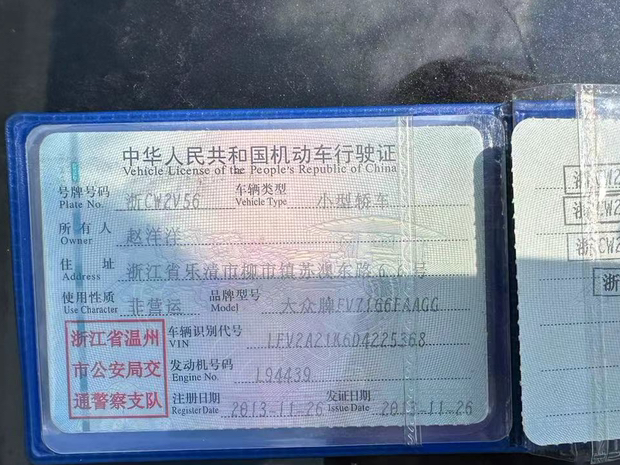 中华人民共和国机动车行驶证
Vehicle License of the People's Republic of China
号牌号码 浙CW2V56 车辆类型 小型轿车
Plate No. Vehicle Type
所有人 赵洋洋
Owner
住址 浙江省乐清市柳市镇苏澳东路66号
Address
使用性质 非营运 品牌型号 大众牌FV7166FAAGG
Use Character Model
浙江省温州
市公安局交
通警察支队
车辆识别代号 LFV2A21K6D4225368
VIN
发动机号码 L94439
Engine No.
注册日期 2013-11-26 发证日期 2013-11-26
Register Date Issue Date
浙